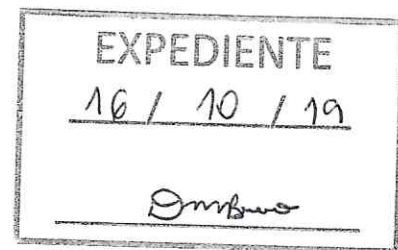 EXPEDIENTE
16 / 10 / 19